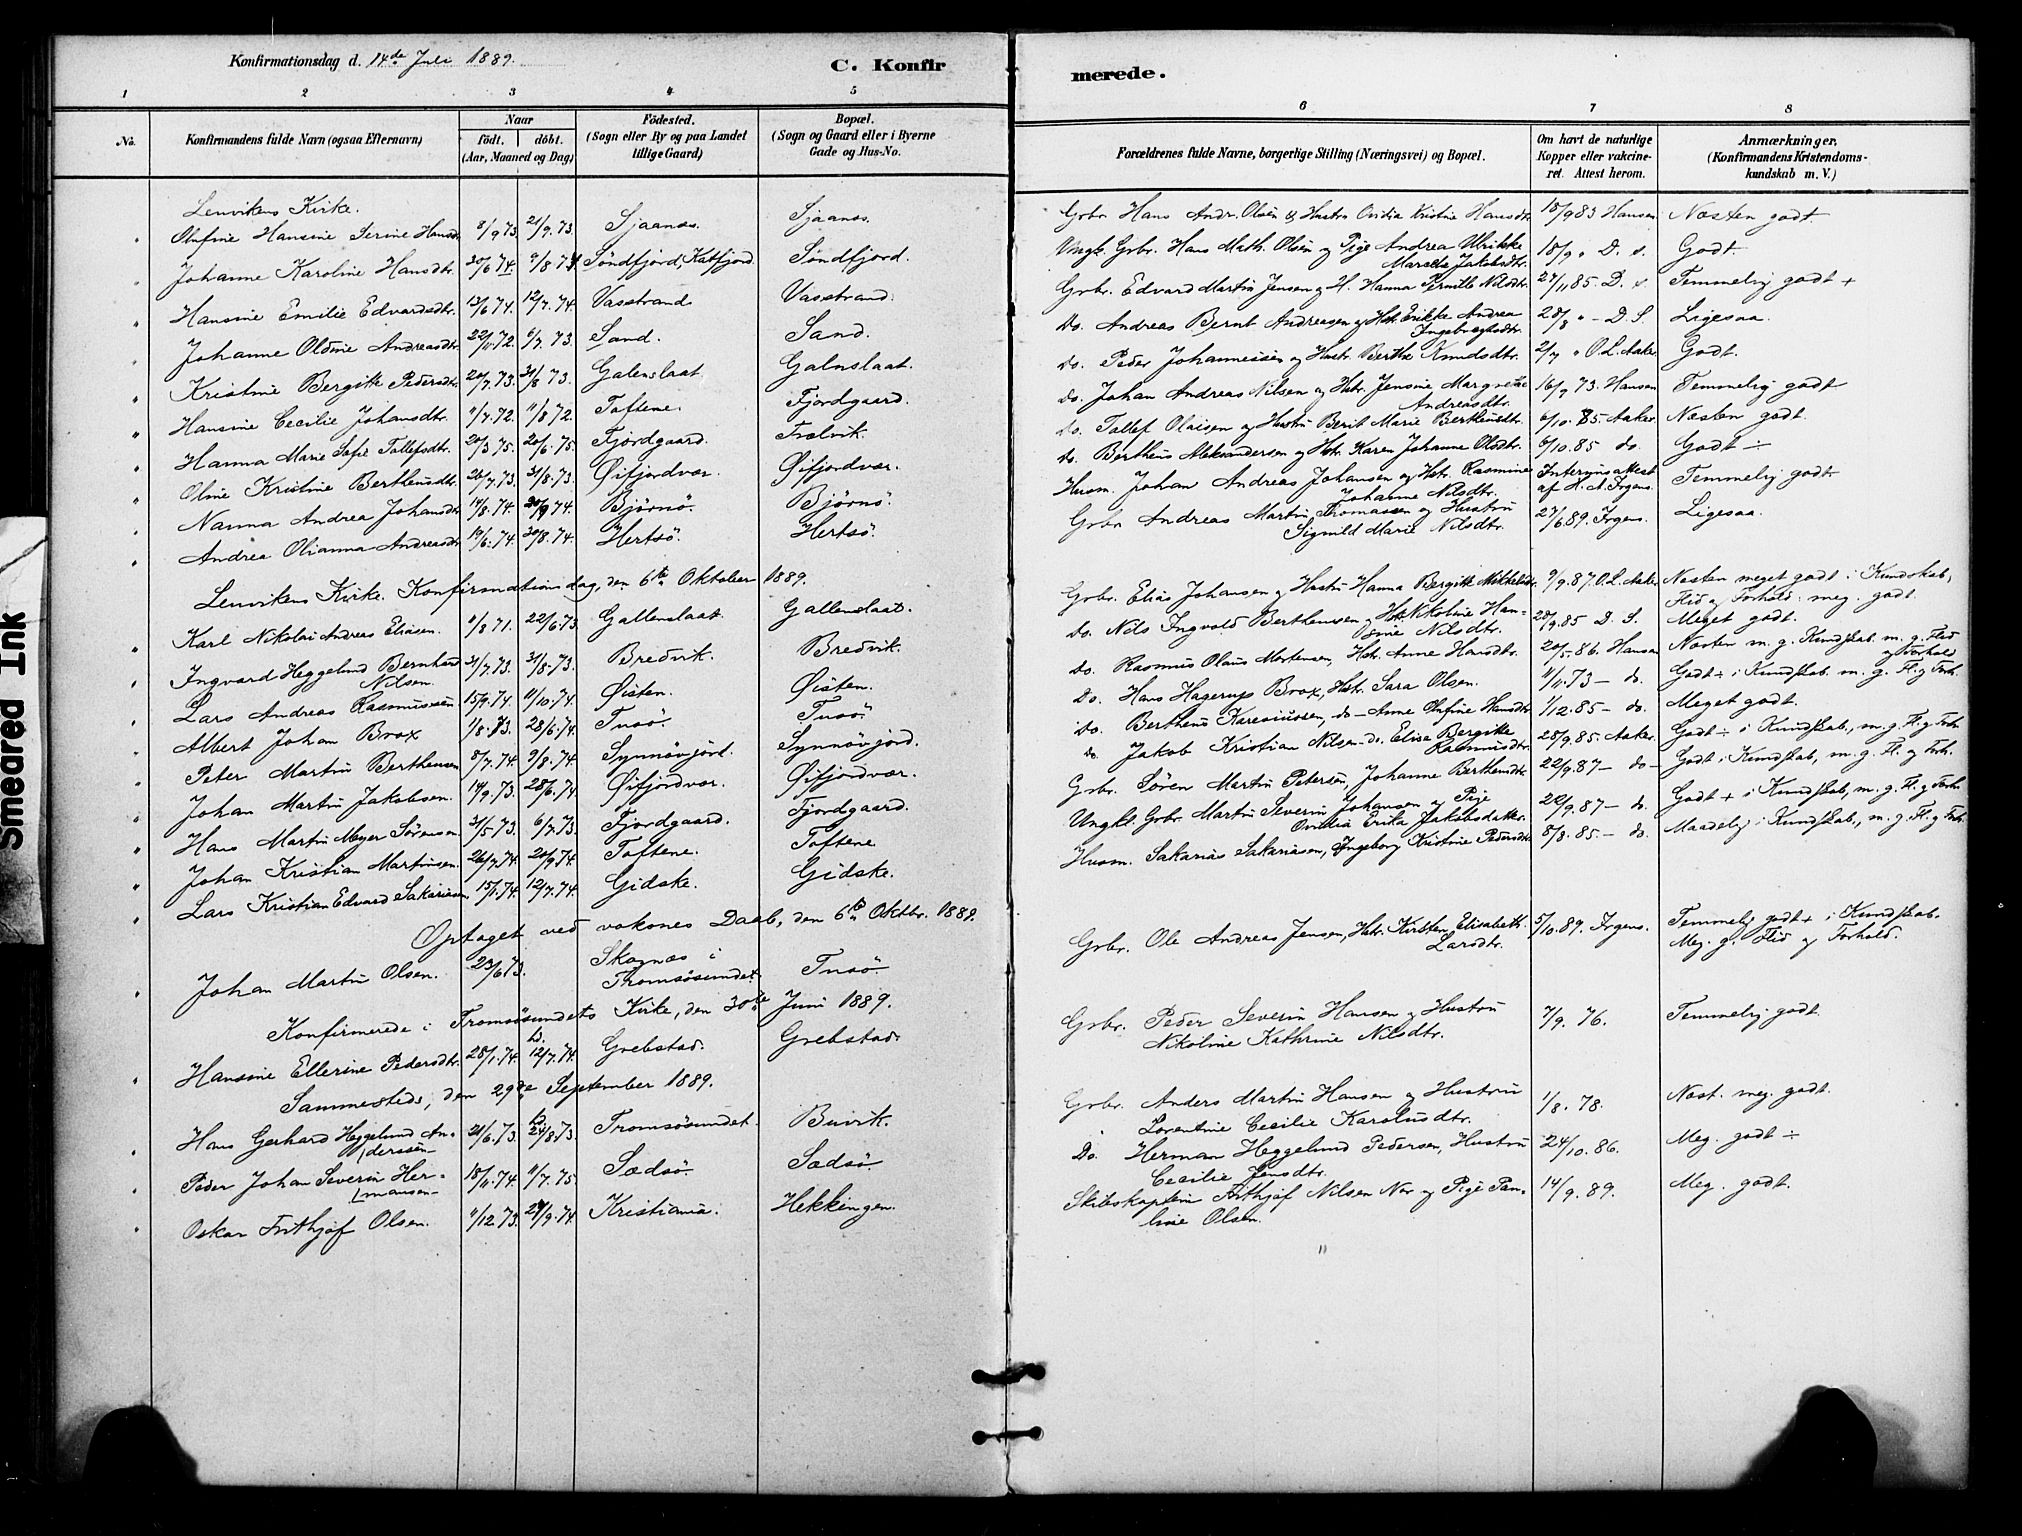 Konfirmationsdag d. 14de Juli 1889.
C. Konfirmerede.
1 2 3 4 5 6 7 8
No.
Konfirmandens fulde Navn (ogsaa Efternavn)
Naar
födt. döbt.
(Aar, Maaned og Dag)
Födested.
(Sogn eller By og paa Landet
tillige Gaard)
Bopæl.
(Sogn og Gaard eller i Byerne
Gade og Hus-No.
Forældrenes fulde Navne, borgerlige Stilling (Næringsvei) og Bopæl.
Om havt de naturlige
Kopper eller vakcine-
ret. Attest herom.
Anmærkninger.
(Konfirmandens Kristendoms-
kundskab m. V.)
Lenvikens Kirke.
" Olufine Hansine Serine Hansdr. 8/9 73. 21/9. 73. Sjaanæs. Sjaanæs. Grbr. Hans Andr. Olsen & Hustru Ovidia Kristine Hansdtr. 18/9 83 Hansen Næsten godt.
" Johanne Karoline Hansdtr. 20/6 74. 9/8 74. Söndfjord, Katfjord. Söndfjord. Ungk. Grbr. Hans Math. Olsen og Pige Andrea Ulrikke
Jakobsdtr. 18/9 " D. s. Godt.
" Hansine Emilie Edvardsdtr. 13/6 74. 12/7. 74. Vasstrand Vasstrand. Grbr. Edvard Martin Jensen og H. Hanna Pernille Nilsdtr. 27/11 85. D. s. Temmelig godt +
" Johanne Oldine Andreasdtr. 22/11. 72. 6/7. 73. Sand. Sand. Do. Andreas Bernt Andreasen og Hstr. Erikke Andrea
Ingebrigtsdtr. 28/8 " - D. S. Ligesaa.
" Kristine Bergitte Pedersdtr. 20/7. 73. 31/8 73. Galenslaat. Galnslaat. do. Peder Johannesen og Hustr. Berthe Knudsdtr. 2/7 " O. L. Aaker. Godt.
" Hansine Cecilie Johansdtr. 11/7. 72. 11/8 72. Toftene. Fjordgaard. do. Johan Andreas Nilsen og Hstr. Jensine Margrethe
Andreasdtr. 16/9 73. Hansen Temmelig godt
" Hanna Marie Sofie Tollefsdtr. 20/3 75. 20/6. 75. Fjordgaard. Trælvik. do. Tollef Olaisen og Hustru Berit Marie Bertheusdtr. 6/10. 85. Aaker. Næsten godt.
" Oline Kristine Bertheusdtr. 26/7. 73. 31/8. 73. Øifjordvær. Øifjordvær. do. Bertheus Aleksandersen og Hstr. Karen Johanne Olsdtr. 6/10. 85 do. Godt ÷
" Nanna Andrea Johansdtr. 14/8. 74. 20/9 74. Bjørnö. Bjørnö. Husm. Johan Andreas Johansen og Hstr. Rasmine
Johanne Nilsdtr. Interimsattest
af H. A. Irgens. Temmelig godt.
" Andrea Olianna Andreasdtr. 19/6. 74. 30/8. 74. Hertsö. Hertsö. Grbr Andreas Martin Thomassen og Hustru
Sigmild Marie Nilsdtr. 27/6 89. Irgens. Ligesaa.
Lenvikens Kirke. Konfirmationsdag, den 6te Oktober 1889.
" Karl Nikolai Andreas Eliasen. 11/8 71. 22/6. 73. Gallenslaat. Gallenslaat. Grbr. Elias Johansen og Hustru Hanna Bergitte Mikkelsdtr. 9/9. 87. O.L. Aaker Næsten meget godt i Kundskab,
Flid og Forhold: meg. godt.
" Ingvard Heggelund Bernhard
Nilsen. 31/7. 73. 31/8. 73. Bredvik. Bredvik. do. Nils Ingvald Bertheusen og Hstr. Nikoline Han-
Nilsdtr. 28/9. 85 D. S. Meget godt.
" Lars Andreas Rasmussen 15/9. 74. 11/10. 74. Øisten. Øisten. do. Rasmus Olaus Mortensen, Hstr. Anne Hansdtr. 20/5 - 86. Hansen Næsten m. g. Kundskab. m. g. Flid
og Forhold
" Albert Johan Brox 1/8. 73. 28/6. 74. Tusö. Tusö. Do. Hans Hagerup Brox, Hstr. Sara Olsen. 11/11. 73 - do. Godt ÷ i Kundskab m. g. Fl. og Forh.
" Peter Martin Bertheusen 8/7. 74. 9/8. 74. Synnövjord. Synnövjord. do. Bertheus Karesiussen, do - Anne Olufine Hansdtr. 1/12. 85 - do. Meget godt.
" Johan Martin Jakobsen. 14/9. 73. 28/6. 74. Øifjordvær. Øifjordvær. do Jakob Kristian Nilsen - do. Elise Bergitte
Rasmusdtr. 28/9. 85. Aaker Godt ÷ i Kundskab., m. g. Fl. og Forh.
" Hans Martin Meyer Sørensen 31/5. 73. 6/7. 73. Fjordgaard. Fjordgaard. Grbr. Søren Martin Petersen, Johanne Bertheusdtr. 22/9. 87 - do - Godt i Kundskab, m. g. Fl. og Forh.
" Johan Kristian Martinsen. 26/7. 74. 20/9. 74. Toftene. Toftene Ungk. Grbr. Martin Severin Johansen og Pige
Ovidia Erika Jakobsdatter. 22/9. 87 - do. Godt + i Kundskab, m. g. Fl. og Forh.
" Lars Kristian Edvard Sakariasen 15/1. 74. 12/7. 74. Gidske. Gidske. Husm. Sakarias Sakariasen, Ingeborg Kristine Pedersdtr. 8/8. 85 - do. Maadelig i Kundskab., m. g. Fl. og Forh.
Optaget ved voksnes Daab, den 6te Oktbr. 1889.
" Johan Martin Olsen. 23/6 73. Skognæs i
Tromsösundet. Tusö. Grbr. Ole Andreas Jensen, Hstr. Kirsten Elisabeth
Larsdtr. 5/10. 89. Irgens. Temmelig godt + i Kundskab.
Meg. g. Flid og Forhold.
Konfirmerede i Tromsösundets Kirke, den 30te Juni 1889.
" Hansine Ellerine Pedersdtr. 28/1. 74. 12/7. 74. Grebstad. Grebstad. Grbr. Peder Severin Hansen og Hustru
Nikoline Kathrine Nilsdtr. 7/9. 76. Temmelig godt.
Sammesteds, den 29de September 1889.
" Hans Gerhard Heggelund An-
derssen 21/6. 73. 24/8. 73. Tromsösundet. Buvik. Grbr. Anders Martin Hansen og Hustru
Lorentine Cecilie Karolusdtr. 1/8. 78. Næst. meg. godt.
" Peder Johan Severin Her-
mansen 18/11. 74. 11/7. 75. Sædsö. Sædsö Do. Herman Heggelund Pedersen, Hustru
Cecilie Jensdtr. 24/10. 86. Meg. godt ÷
" Oskar Frithjof Olsen. 11/12. 73. 27/9. 74. Kristiania. Hekkingen. Skibskaptein Frithjof Nilsen Nor og Pige Pau-
line Olsen. 14/9. 89. Meg. godt.
"
Smeared Ink